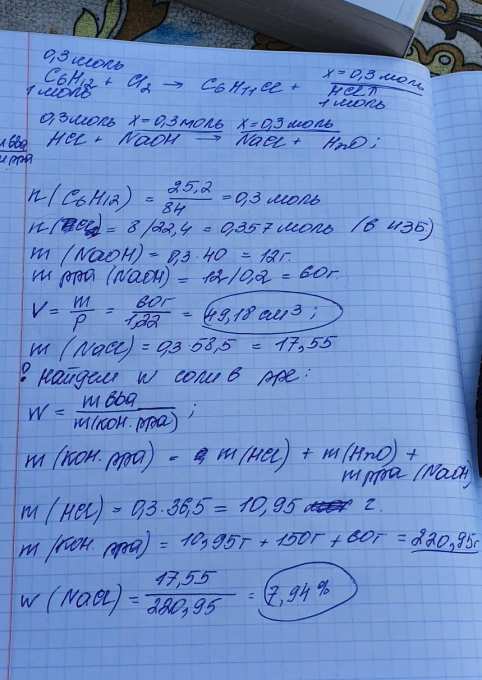 0,3 моль
C6H12 + Cl2 → C6H11Cl + HCl↑
x = 0,3 моль
1 моль
1 моль
0,3 моль x = 0,3 моль x = 0,3 моль
HCl + NaOH → NaCl + H2O;
n(C6H12) = 25,2/84 = 0,3 моль
n(Cl2) = 8/22,4 = 0,357 моль (в изб)
m (NaOH) = 0,3·40 = 12г.
m рра (NaOH) = 12/0,2 = 60г.
V = m/ρ = 60г/1,22 = 49,18 см³;
m (NaCl) = 0,3·58,5 = 17,55
Найдем w соли в рре:
w = m вва/m(кон. рра);
m (кон. рра) = m(HCl) + m(H2O) +
m рра (NaOH)
m (HCl) = 0,3·36,5 = 10,95 г.
m (кон. рра) = 10,95г + 150г + 60г = 220,95г
w (NaCl) = 17,55/220,95 = 7,94%